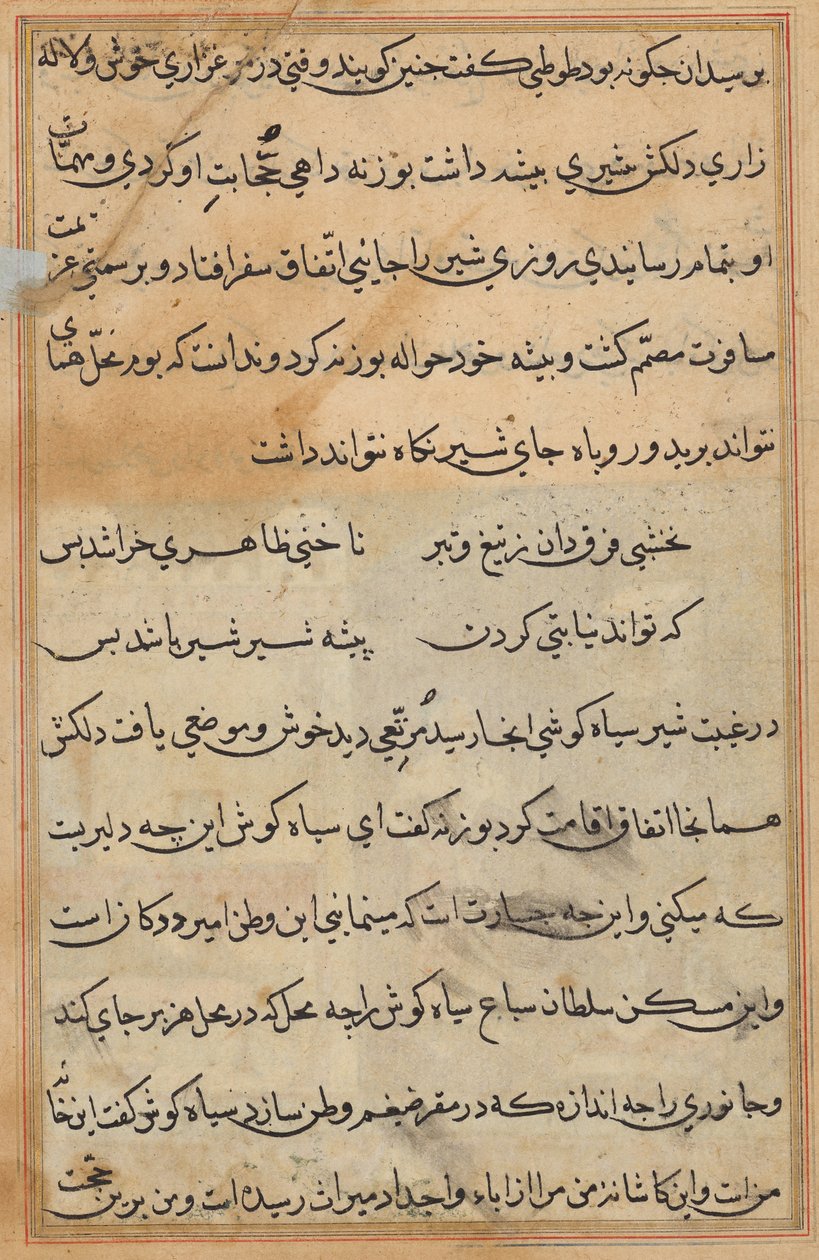 پرسید ان جکونه بود طوطی کفت جنین کویند وقتی در مرغزاری خوش و لاله
زاری دلکش شیری بیشه داشت بوزنه داهی حجابت او کردی و مهمّات
او بتمام رسانیدی روزی شیر را جائیی اتّفاق سفر افتاد و بر سمتی عزیمت
مسافرت مصمّم کشت و بیشه خود حواله بوزنه کرد و ندانست که بوم محلّ همای
نتواند برید و روباه جای شیر نکاه نتواند داشت
نخشبی فرق دان ز تیغ و تبر ناخنی ظاهری خراشد بس
که تواند نیابتی کردن پیشه شیر شیر باشد بس
در غیبت شیر سیاه کوشی انجا رسید مرتّعی دید خوش و موضعی یافت دلکش
همانجا اتفاق اقامت کرد بوزنه کفت ای سیاه کوش این چه دلیریست
که میکنی و این جه جسارت است که مینمایی این وطن امیر ددکان است
و این مسکن سلطان سباع سیاه کوش را چه محل که در محل هزبر جای کند
و جانوری را جه اندازه که در مقر ضیغم وطن سازد سیاه کوش کفت این خانه
من است و این کاشانه من مرا از اباء و اجداد میراث رسیده است و من برین حجّت